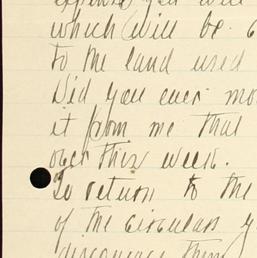 expense you will
which will be
to the land used
Did you ever
it from me that
over this week.
To return to the
of the circulars
discourage them